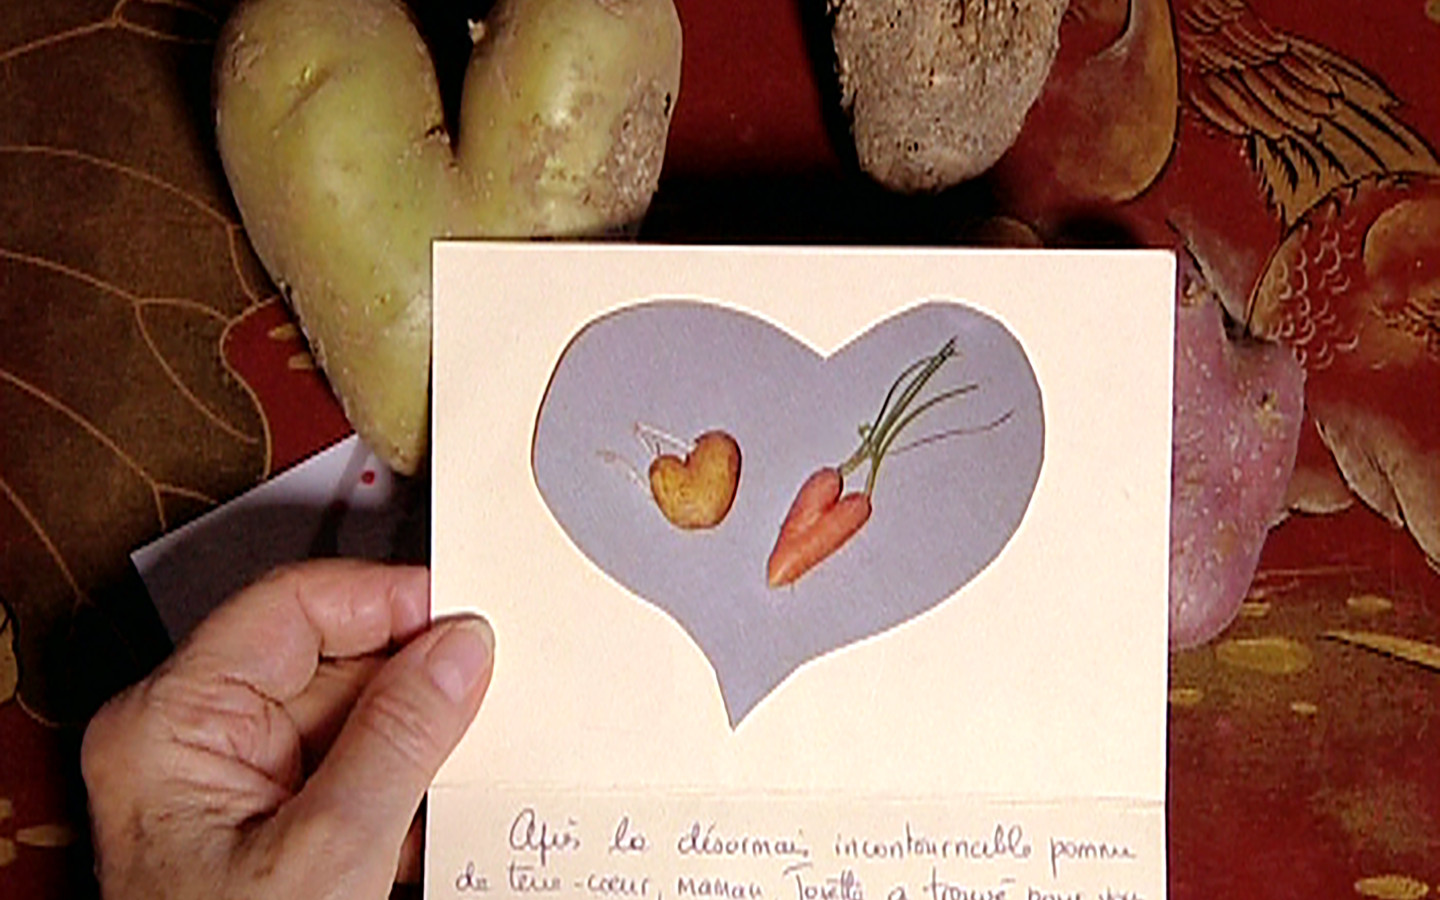 Après la désormais incontournable pomme
de terre-cœur, maman Josette a trouvé pour vous